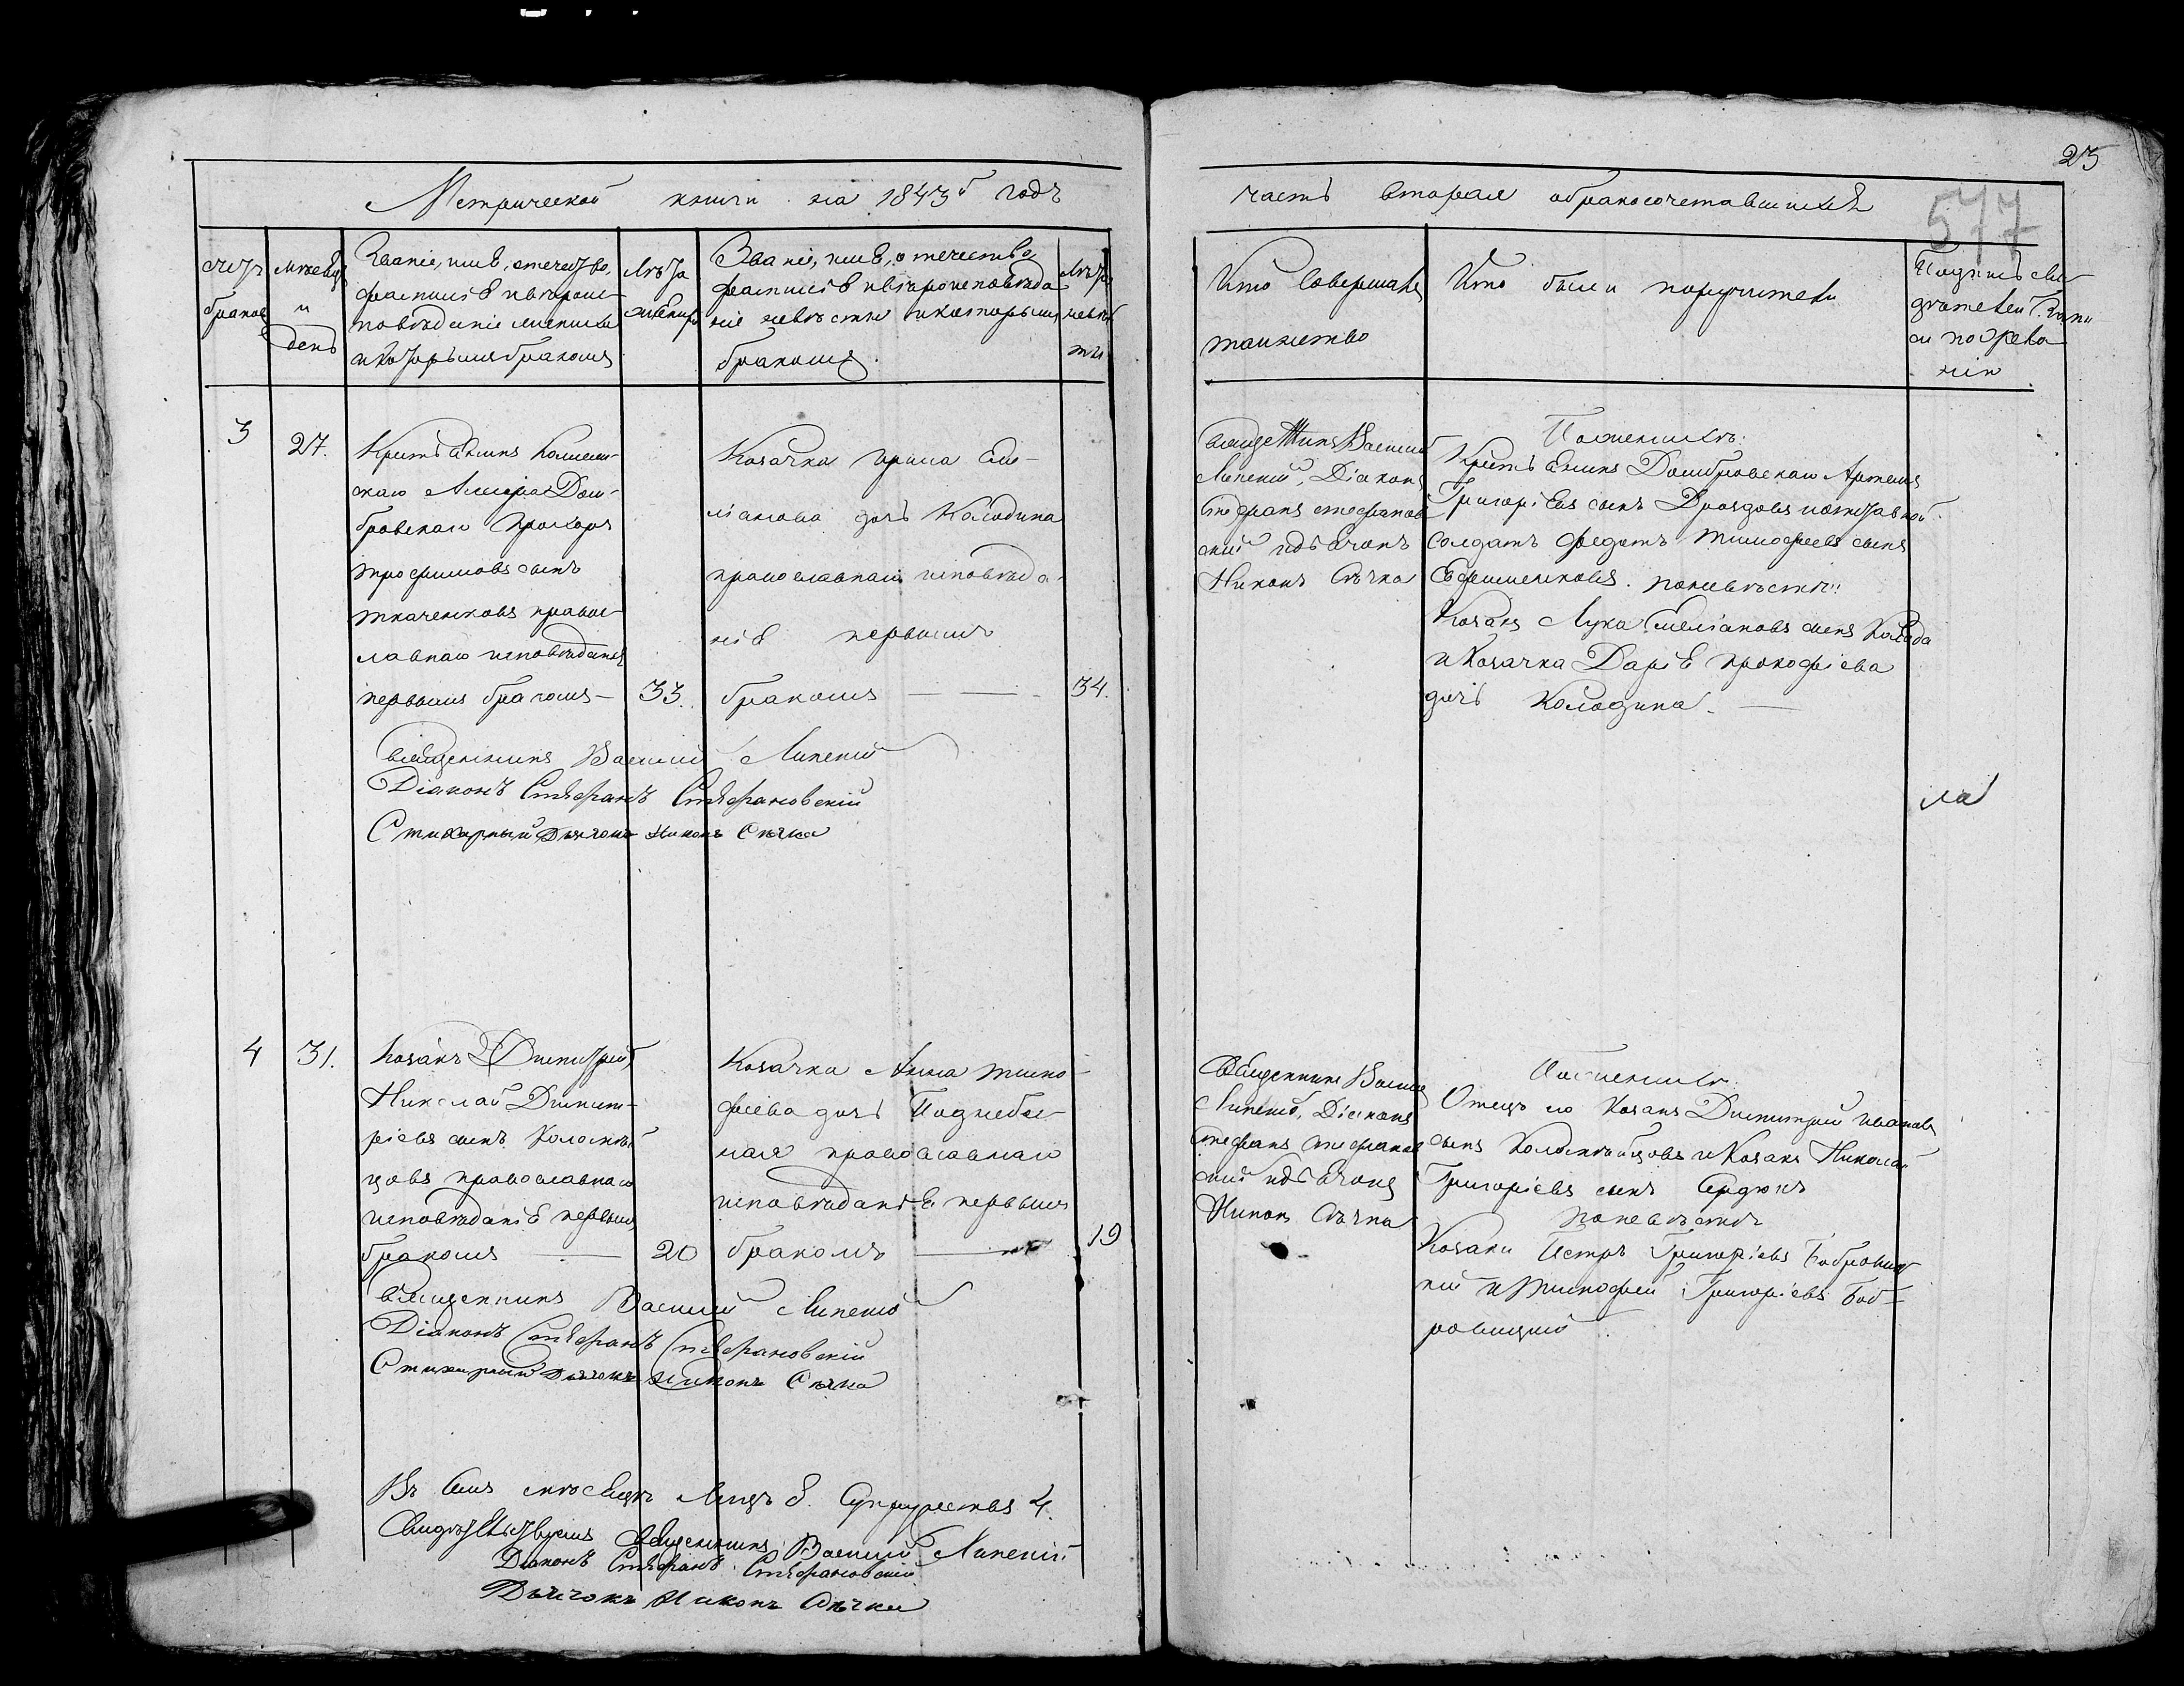 25
577
Метрической книги на 1843й годъ
часть вторая о бракосочетавшихся
счетъ браков
месяцъ и день
Званіе, имя, отечество,
фамилія и вероис-
поведаніе жениха
и которымъ бракомъ
лета жениха
Званіе, имя, отечество
фамилія и вероисповеда
ніе невесты и которымъ
бракомъ.
лета невес ты
Кто совершалъ
таинство
Кто были поручители
Подпись сви
детелей
по желанію
3
27.
Крестьянинъ
Дом-
бровскаго Прохоръ
Трофимовъ сынъ
Ткаченковъ правос-
лавнаго исповеданія
первымъ бракомъ —
33.
Козачка Ирина Еме-
ліанова дочь Колодина
православнаго исповеда-
нія первымъ
бракомъ — —
34.
Священникъ Василій
Липскій, Діаконъ
Стефанъ Стефанов
скій и дьячокъ
Никонъ Сечка
По женихе:
Крестьянинъ Домбровскаго Артемъ
Григоріевъ сынъ Дроздовъ и отставной
солдатъ Федотъ Тимофеевъ сынъ
Ефименковъ. по невесте:
Козакъ Лука Емеліановъ сынъ Колода
и Козачка Дарія Прокофіева
дочь Колодина. —
Священникъ Василій Липскій
Діаконъ Стефанъ Стефановскій
Стихарный Дьячокъ Никонъ Сечка
4
31.
Козакъ
Николай Димит-
ріевъ сынъ
цовъ православнаго
исповеданія первымъ
бракомъ —
20
Козачка Анна Тимо-
феева дочь Поднебес-
ная православнаго
исповеданія первымъ
бракомъ —
19
Священникъ Василій
Липскій, Діаконъ
Стефанъ Стефанов
скій и дьячокъ
Никонъ Сечка
По женихе:
Отецъ его Козакъ Димитрій Ивановъ
сынъ и Козакъ Николай
Григоріевъ сынъ Сердюкъ
по невесте
Козаки Петръ Григоріевъ Бобровиц
кій и Тимофей Григоріевъ Боб-
ровицкій
Священникъ Василій Липскій
Діаконъ Стефанъ Стефановскій
Стихарный Дьячокъ Никонъ Сечка
Въ семъ месяце лицъ 8. Супружествъ 4.
Священникъ Василій Липскій
Діаконъ Стефанъ Стефановскій
Дьячокъ Никонъ Сечка